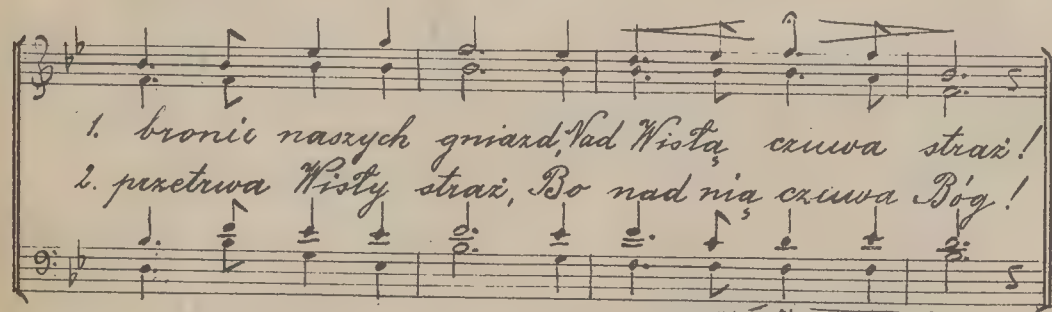 1. bronić naszych gniazd, Nad Wisłą czuwa straż!
2. przetrwa Wisły straż, Bo nad nią czuwa Bóg!